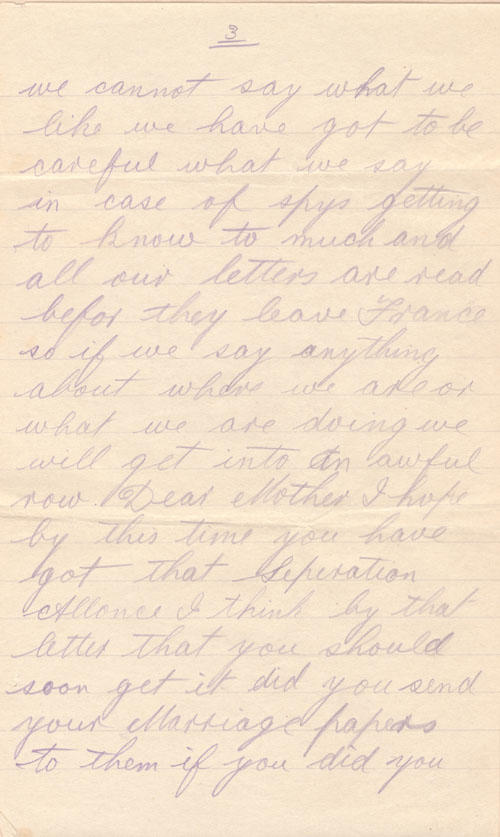 3
we cannot say what we
like we have got to be
careful what we say
in case of spys getting
to know to much and
all our letters are read
befor they leave France
so if we say anything
about where we are or
what we are doing we
will get into an awful
row. Dear Mother I hope
by this time you have
got that Seperation
Allonce I think by that
letter that you should
soon get it did you send
your Marriage papers
to them if you did you